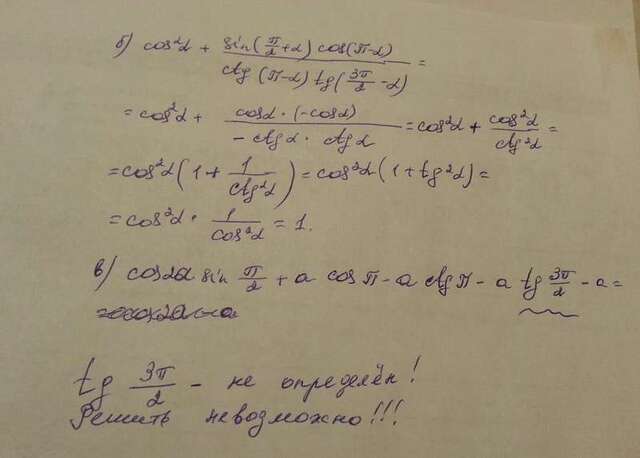 б) cos²α + sin(π/2+α) cos(π-α) / ctg(π-α) tg(3π/2-α) =
= cos²α + cosα · (-cosα) / -ctgα · ctgα = cos²α + cos²α / ctg²α =
= cos²α (1 + 1/ctg²α) = cos²α (1 + tg²α) =
= cos²α · 1/cos²α = 1.
в) cos2a sin π/2 + a cos π - a ctg π - a tg 3π/2 - a =
tg 3π/2 - не определён!
Решить невозможно!!!